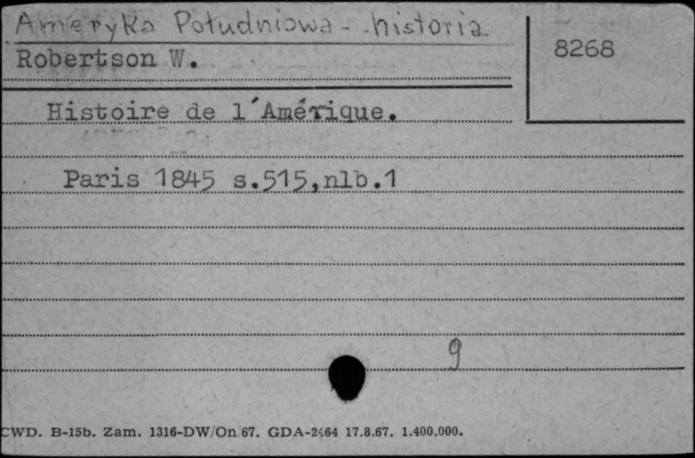 Ameryka Południowa - historia
Robertson W.
8268
Histoire de l'Amérique.
Paris 1845 s.515,nlb.1
9
CWD. B-15b. Zam. 1316-DW/On 67. GDA-2464 17.8.67. 1.400.000.